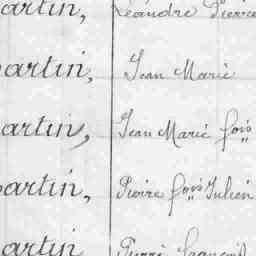 artin, Léandre Pierre
artin, Jean Marie
artin, Jean Marie fois
artin, Pierre fois Julien
artin Pierre François